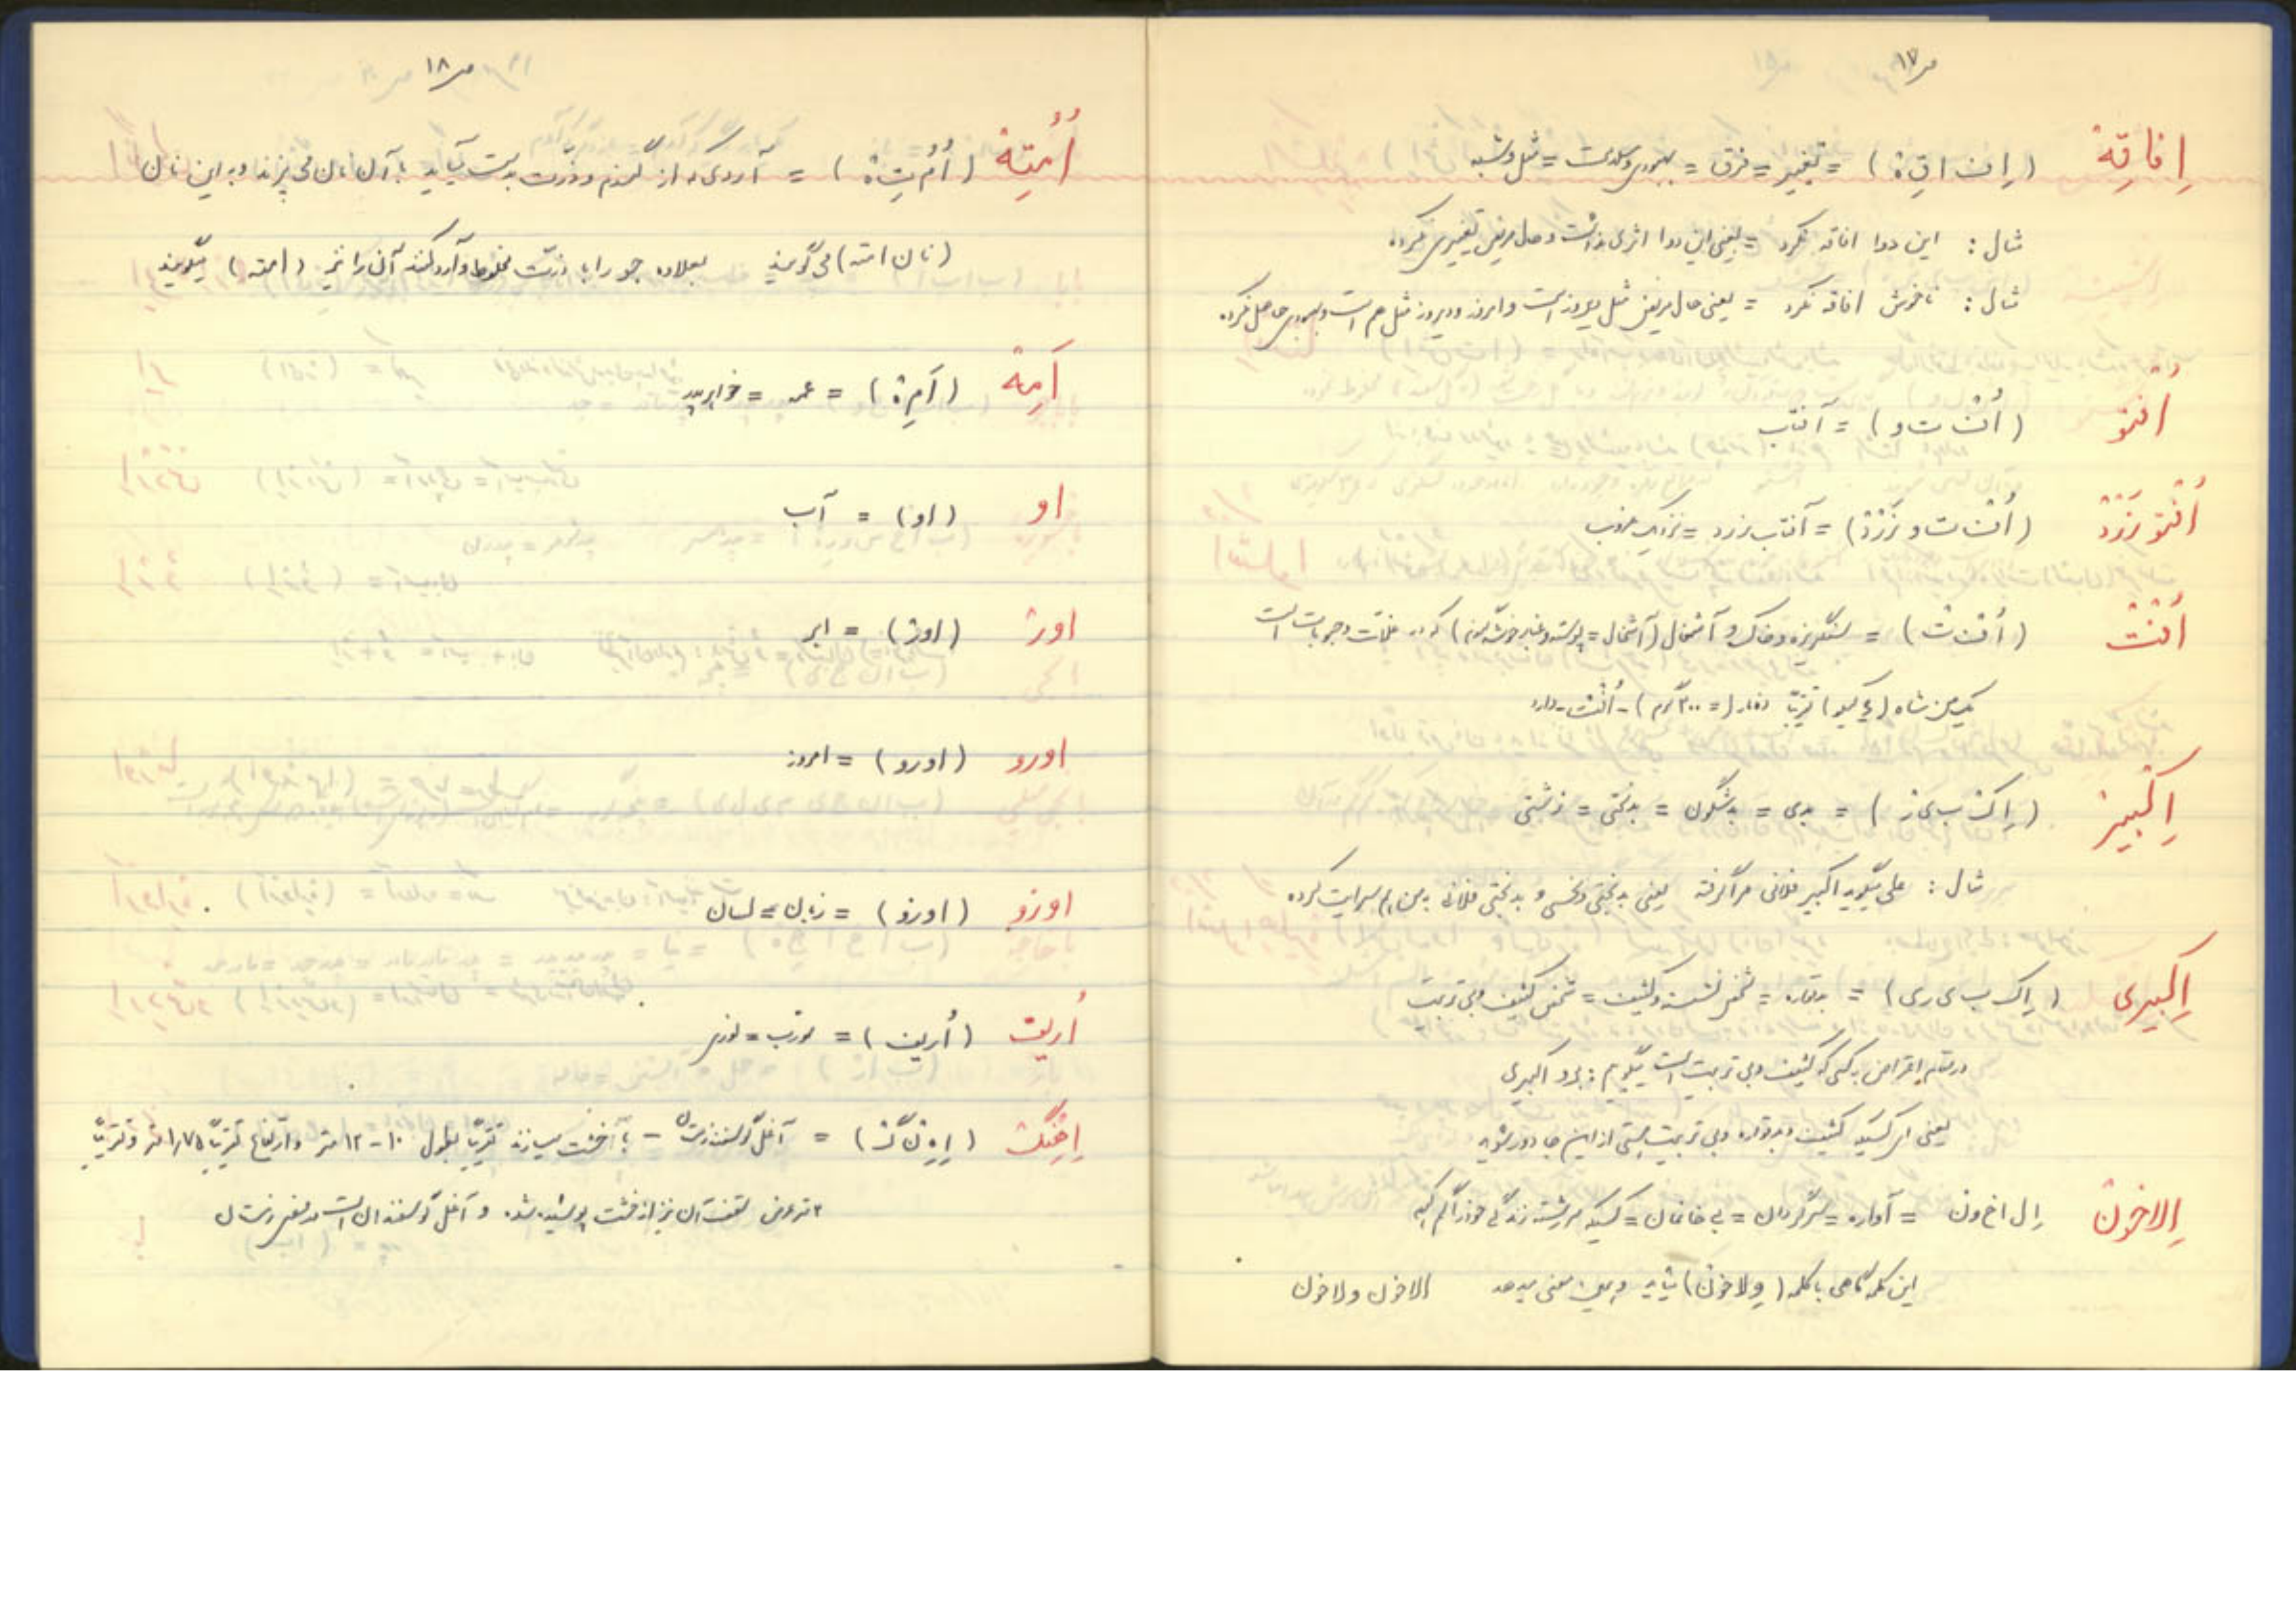 ص ١٧
اِفاقِهْ (اِف اقِهْ) = تغییر = فرق = بهبودی و سلامت = مثل و شبه
مثال: این دوا افاقه نکرد = یعنی این دوا اثری نداشت و حال مریض تغییری نکرد.
مثال: ناخوش افاقه نکرد = یعنی حال مریض مثل دیروز است و امروز و دیروز مثل هم است و بهبودی حاصل نکرده.
اُفتو (اُفْ ت و) = آفتاب
اُفْتو زَرْدْ (اُفْ ت و زَرْدْ) = آفتاب زرد = نزدیک غروب
اُفْتْ (اُفْ تْ) = سنگریزه و خاک و آشغال (آشغال = پوسته و غیره خوشه گندم) که در غلات و حبوبات است
یک من شاه (٦ کیلو) تقریباً (= ٣٠٠ گرم) - اُفْت - دارد
اِکْبیرْ (اِکْ ب ی ر) = بدی = بدشگون = بدبختی = زشتی
مثال: علی میگوید اکبیر فلانی مرا گرفته یعنی بدبختی و نحسی و بدبختی فلانی به من هم سرایت کرده.
اِکْبیری (اِک ب ی ر ی) = بدقواره = شخص زشت و کثیف = شخص کثیف و بی تربیت
در مقام اعتراض به کسی که کثیف و بی تربیت است میگوییم: برو اکبیری
یعنی ای کسیکه کثیف و بدقواره و بی تربیت هستی از این جا دور شو
اِلاخونْ اِل اخ ون = آواره = سرگردان = بی خانمان = کسیکه سررشته زندگی خود را گم کند
این کلمه گاهی با کلمه (وِلاخونْ) میآید و همین معنی میدهد الاخون ولاخون
ص ١٨
اُمُتِهْ (اُمُ تِ هْ) = آردی که از گندم و ذرّت بدست میآید با آن نان می پزند و به این نان
(نان امته) می گویند بعلاوه جو را با ذرّت مخلوط و آرد کنند آن را نیز (امته) میگویند
اَمِهْ (اَمِ هْ) = عمه = خواهر پدر
او (او) = آب
اورْ (اورْ) = ابر
اورو (اورو) = امروز
اوزو (اوزو) = زبان = لسان
اُریبْ (اُریب) = مورّب =
(اِوِنْ گْ) = آغل گوسفند زمستان - با خشت میسازند تقریباً بطول ١٠ - ١٢ متر و ارتفاع تقریباً ١/٧٥ متر و تقریباً
٣ متر عرض سقف آن نیز از خشت پوشیده شده و آغل گوسفندان است در فصل زمستان